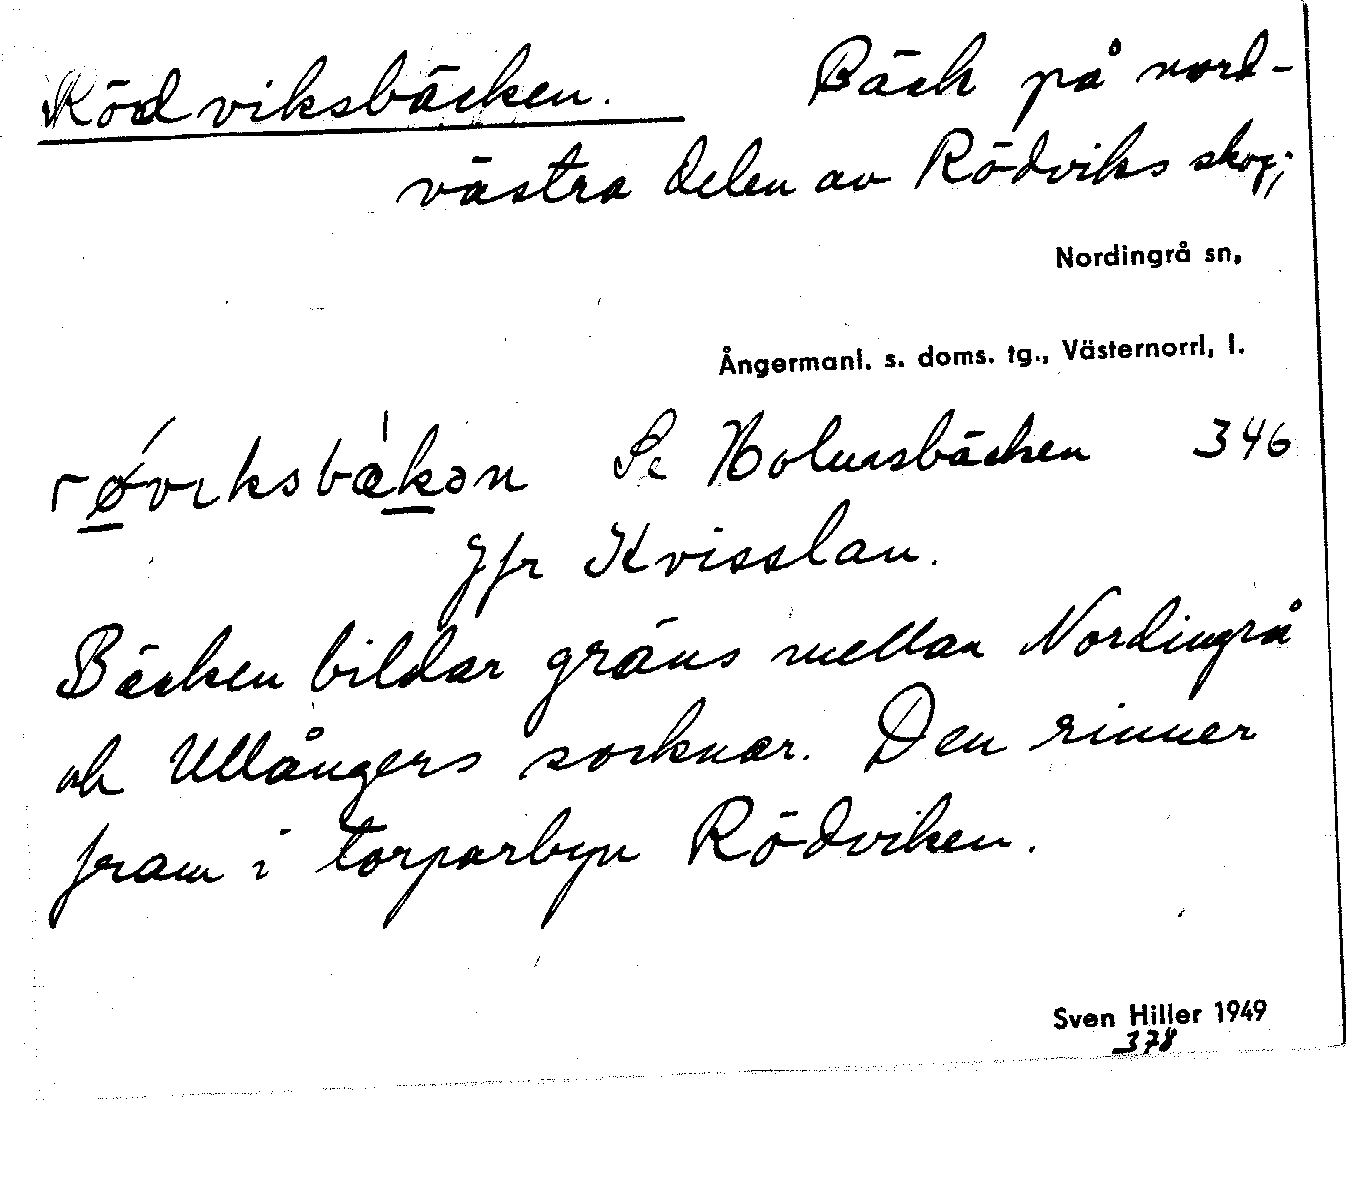 Rödviksbäcken. Bäck på nord-
västra delen av Rödviks skog;
Nordingrå sn,
Ångermanl. s. doms. tg., Västernorrl, l.
røvıksbækən Se Holmsbäcken 346
Jfr Kvisslan.
Bäcken bildar gräns mellan Nordingrå
och Ullångers socknar. Den rinner
fram i torparbyn Rödviken.
Sven Hiller 1949
378